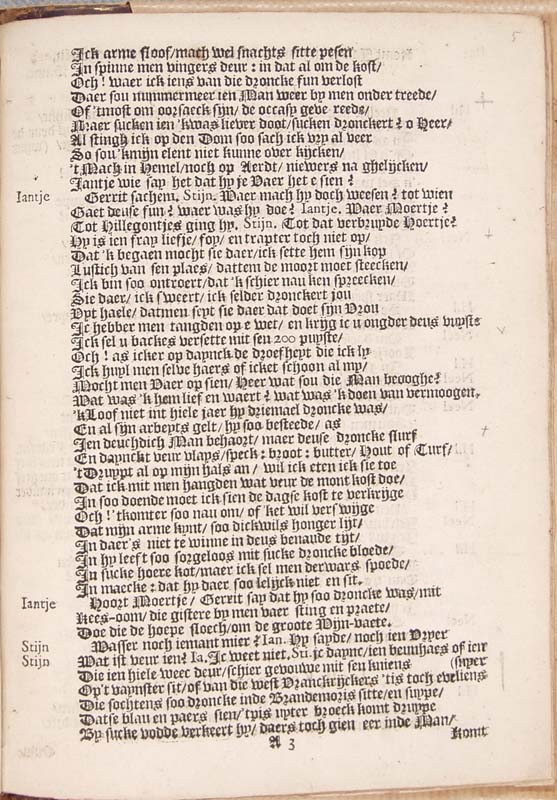 5
Ick arme sloof/mach wel snachts sitte pesen
In spinne men vingers deur: in dat al om de kost/
Och! waer ick iens van die droncke fun verlost
Daer sou nummermeer ien Man weer by men onder treede/
Of 'tmost om oorsaeck sijn/ de occasy geve reede/
Maer sucken ien 'kwas liever doot/sucken dronckert? o Heer/
Al stingh ick op den Dom soo sach ick vry al veer
So sou 'kmijn elent niet kunne over kijcken/
't Mach in Hemel/noch op Aerdt/ niewers na ghelijcken/
Jantje wie say het dat hy je Vaer het e sien?
Iantje Gerrit sachem. Stijn. Waer mach hy doch weesen? tot wien
Gaet deuse fun? waer was hy doe? Iantje. Waer Moertje?
Tot Hillegontjes ging hy. Stijn. Tot dat verbruyde Hoertje?
Hy is ien fray liefje/ foy/ en trapter toch niet op/
Dat 'k begaen mocht sie daer/ick sette hem sijn kop
Lustich van sen plaes/ dattem de moort moet steecken/
Ick bin soo ontroert/dat 'k schier nau ken spreecken/
Sie daer/ ick sweert/ ick selder dronckert jou
Uyt haele/ datmen seyt sie daer dat doet sijn Vrou
Ic hebber men tangden op e wet/ en krijg ic u ongder deus vuyste
Ick sel u backes versette mit sen 200 puyste/
Och! as icker op daynck de droefheyt die ick ly
Ick huyl men selve haers of icket schoon al my/
Mocht men Vaer op sien/ Heer wat sou die Man beooghe?
Wat was 'k hem lief en waert? wat was 'k doen van vermoogen,
'kLoof niet int hiele jaer hy driemael droncke was/
En al sijn arbeyts gelt/ hy soo besteede/ as
Ien deuchdich Man behaort/ maer deuse droncke slurf
En daynckt veur vlays/speck: broot: butter/ Hout of Turf/
't Druypt al op mijn hals an/ wil ick eten ick sie toe
Dat ick mit men hangden wat veur de mont kost doe/
In soo doende moet ick sien de dagse kost te verkrijge
Och! 'tkomter soo nau om/ of 'ket wil vers wijge
Dat mijn arme kynt/ soo dickwils honger lijt/
In daer's niet te winne in deus benaude tijt/
In hy leeft soo sorgeloos mit sucke droncke bloede/
In sucke hoere kot/maer ick sel men derwars spoede/
In maecke: dat hy daer soo lelijck niet en sit.
Iantje Hoort Moertje/ Gerrit say dat hy soo droncke was/mit
Kees-oom/ die gistere by men vaer sting en praete/
Doe die de hoepe sloech/om de groote Wijn-vaete.
Stijn Wasser noch iemant mier? Ian. Hy sayde/ noch ien Vryer
Stijn Wat ist veur ien? Ia. Ic weet niet. Sti. je daync/ien beunhaes of ienr
Die ien hiele weec deur/schier gevouwe mit sen kniens (snyer
Op't vaynster sit/of van die west Vranckrijckers 'tis toch eveliens
Die sochtens soo droncke inde Brandemoris sitte/en suype/
Datse blau en paers sien/'tpis uyter broeck komt druype
By sucke vodde verkeert hy/ daers toch gien eer inde Man/
A 3 komt